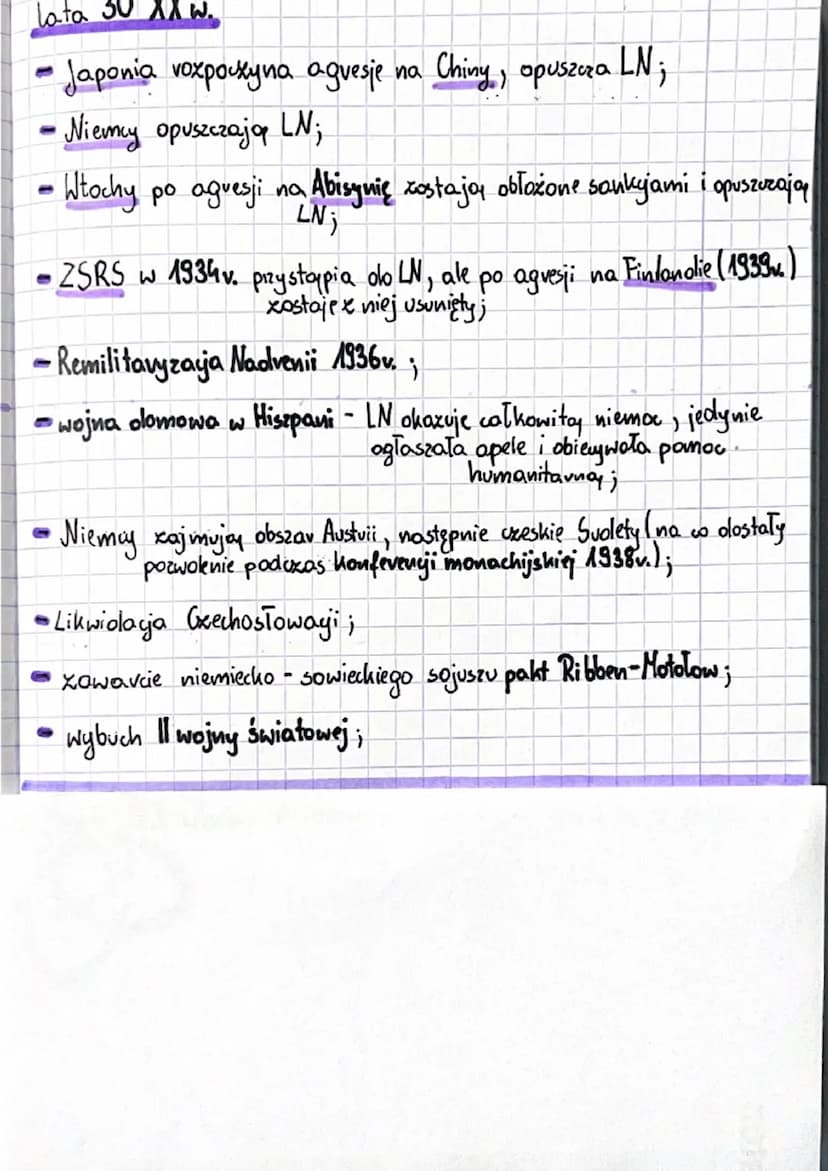 lata 30 XX w.
- Japonia rozpoczyna agresję na Chiny, opuszcza LN;
- Niemcy opuszczają LN;
- Włochy po agresji na Abisynię zostają obłożone sankcjami i opuszczają
LN;
- ZSRS w 1934r. przystąpia do LN, ale po agresji na Finlandie (1939r.)
zostaje z niej usunięty;
- Remilitaryzacja Nadrenii 1936r. ;
- wojna domowa w Hiszpani - LN okazuje całkowitą niemoc, jedynie
ogłaszała apele i obiecywała pomoc
humanitarną;
- Niemcy zajmują obszar Austrii, następnie czeskie Sudety (na co dostały
pozwolenie podczas konferencji monachijskiej 1938r.);
- Likwidacja Czechosłowacji;
- zawarcie niemiecko - sowieckiego sojuszu pakt Ribben-Mołotow;
- wybuch II wojny światowej;